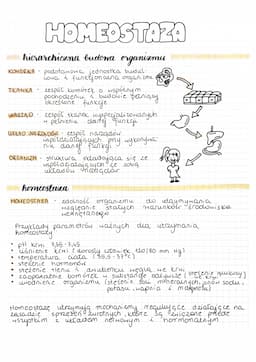 HOMEOSTAZA
hierarchiczna budowa organizmu
KOMÓRKA - podstawowa jednostka budul
cowa i funkcjonalna organizmu
TKANKA - zespół komórek o wspólnym
pochodzeniu i budowie pełniący
określone funkcje
NARZĄD - zespół tkanek wyspecjalizowanych
w pełnieniu danej funkcji
UKŁAD NARZĄDÓW - zespół narządów
współdziałających przy wykonywa-
niu danej funkcji
ORGANIZM - struktura składająca się ze
współdziałających ze sobą
układów narządów
homeostaza
HOMEOSTAZA - zdolność organizmu do utrzymywania
względnie stałych warunków środowiska
wewnętrznego
Przykłady parametrów ważnych dla utrzymania
homeostazy
• pH krwi 7,35-7,45
• ciśnienie krwi (dorosły człowiek 120/80 mm Hg)
• temperatura ciała (36,5-37°C)
• stężenie hormonów
• stężenie tlenu i dwutlenku węgla we krwi
• zaopatrzenie komórek w substancje odżywcze (stężenie glukozy)
• uwodnienie organizmu (stężenie soli mineralnych, jonów sodu,
potasu, wapnia i magnezu)
Homeostazę utrzymują mechanizmy regulujące działające na
zasadzie sprzężeń zwrotnych, które są
wszystkim z układem nerwowym i hormonalnym